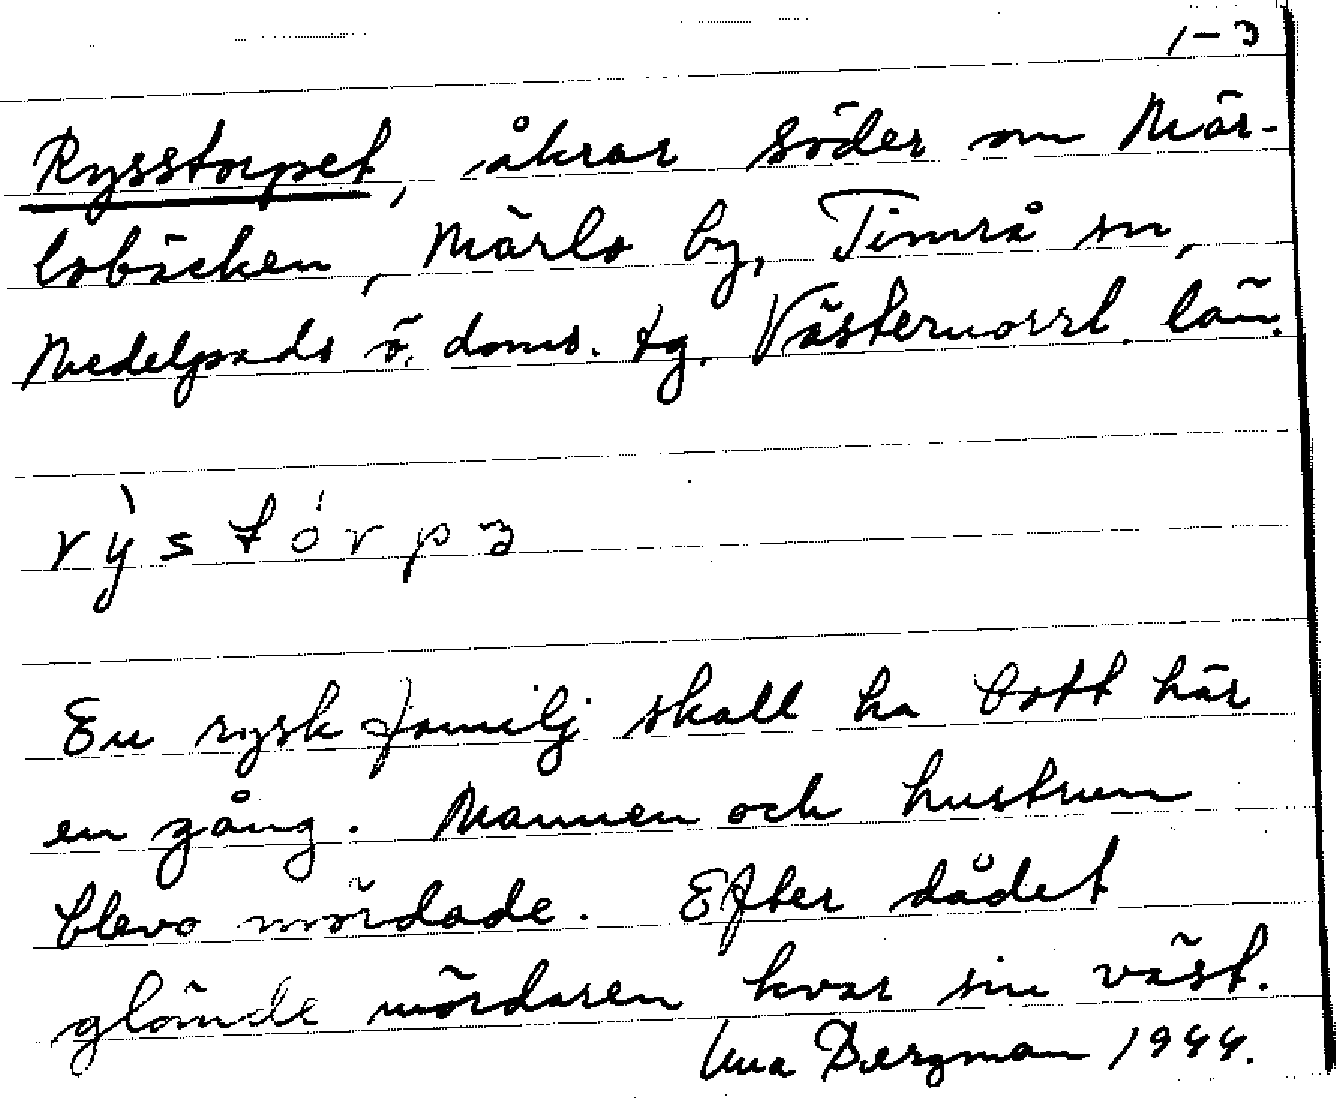 Rysstorpet, åkrar söder om Mär-
lobäcken, Märlo by, Timrå sn,
Medelpads ö. doms. tg. Västernorrl. län.
rỳstórpə
En rysk familj skall ha bott här
en gång. Mannen och hustrun
blevo mördade. Efter dådet
glömde mördaren kvar sin väst.
Bergman 1944.